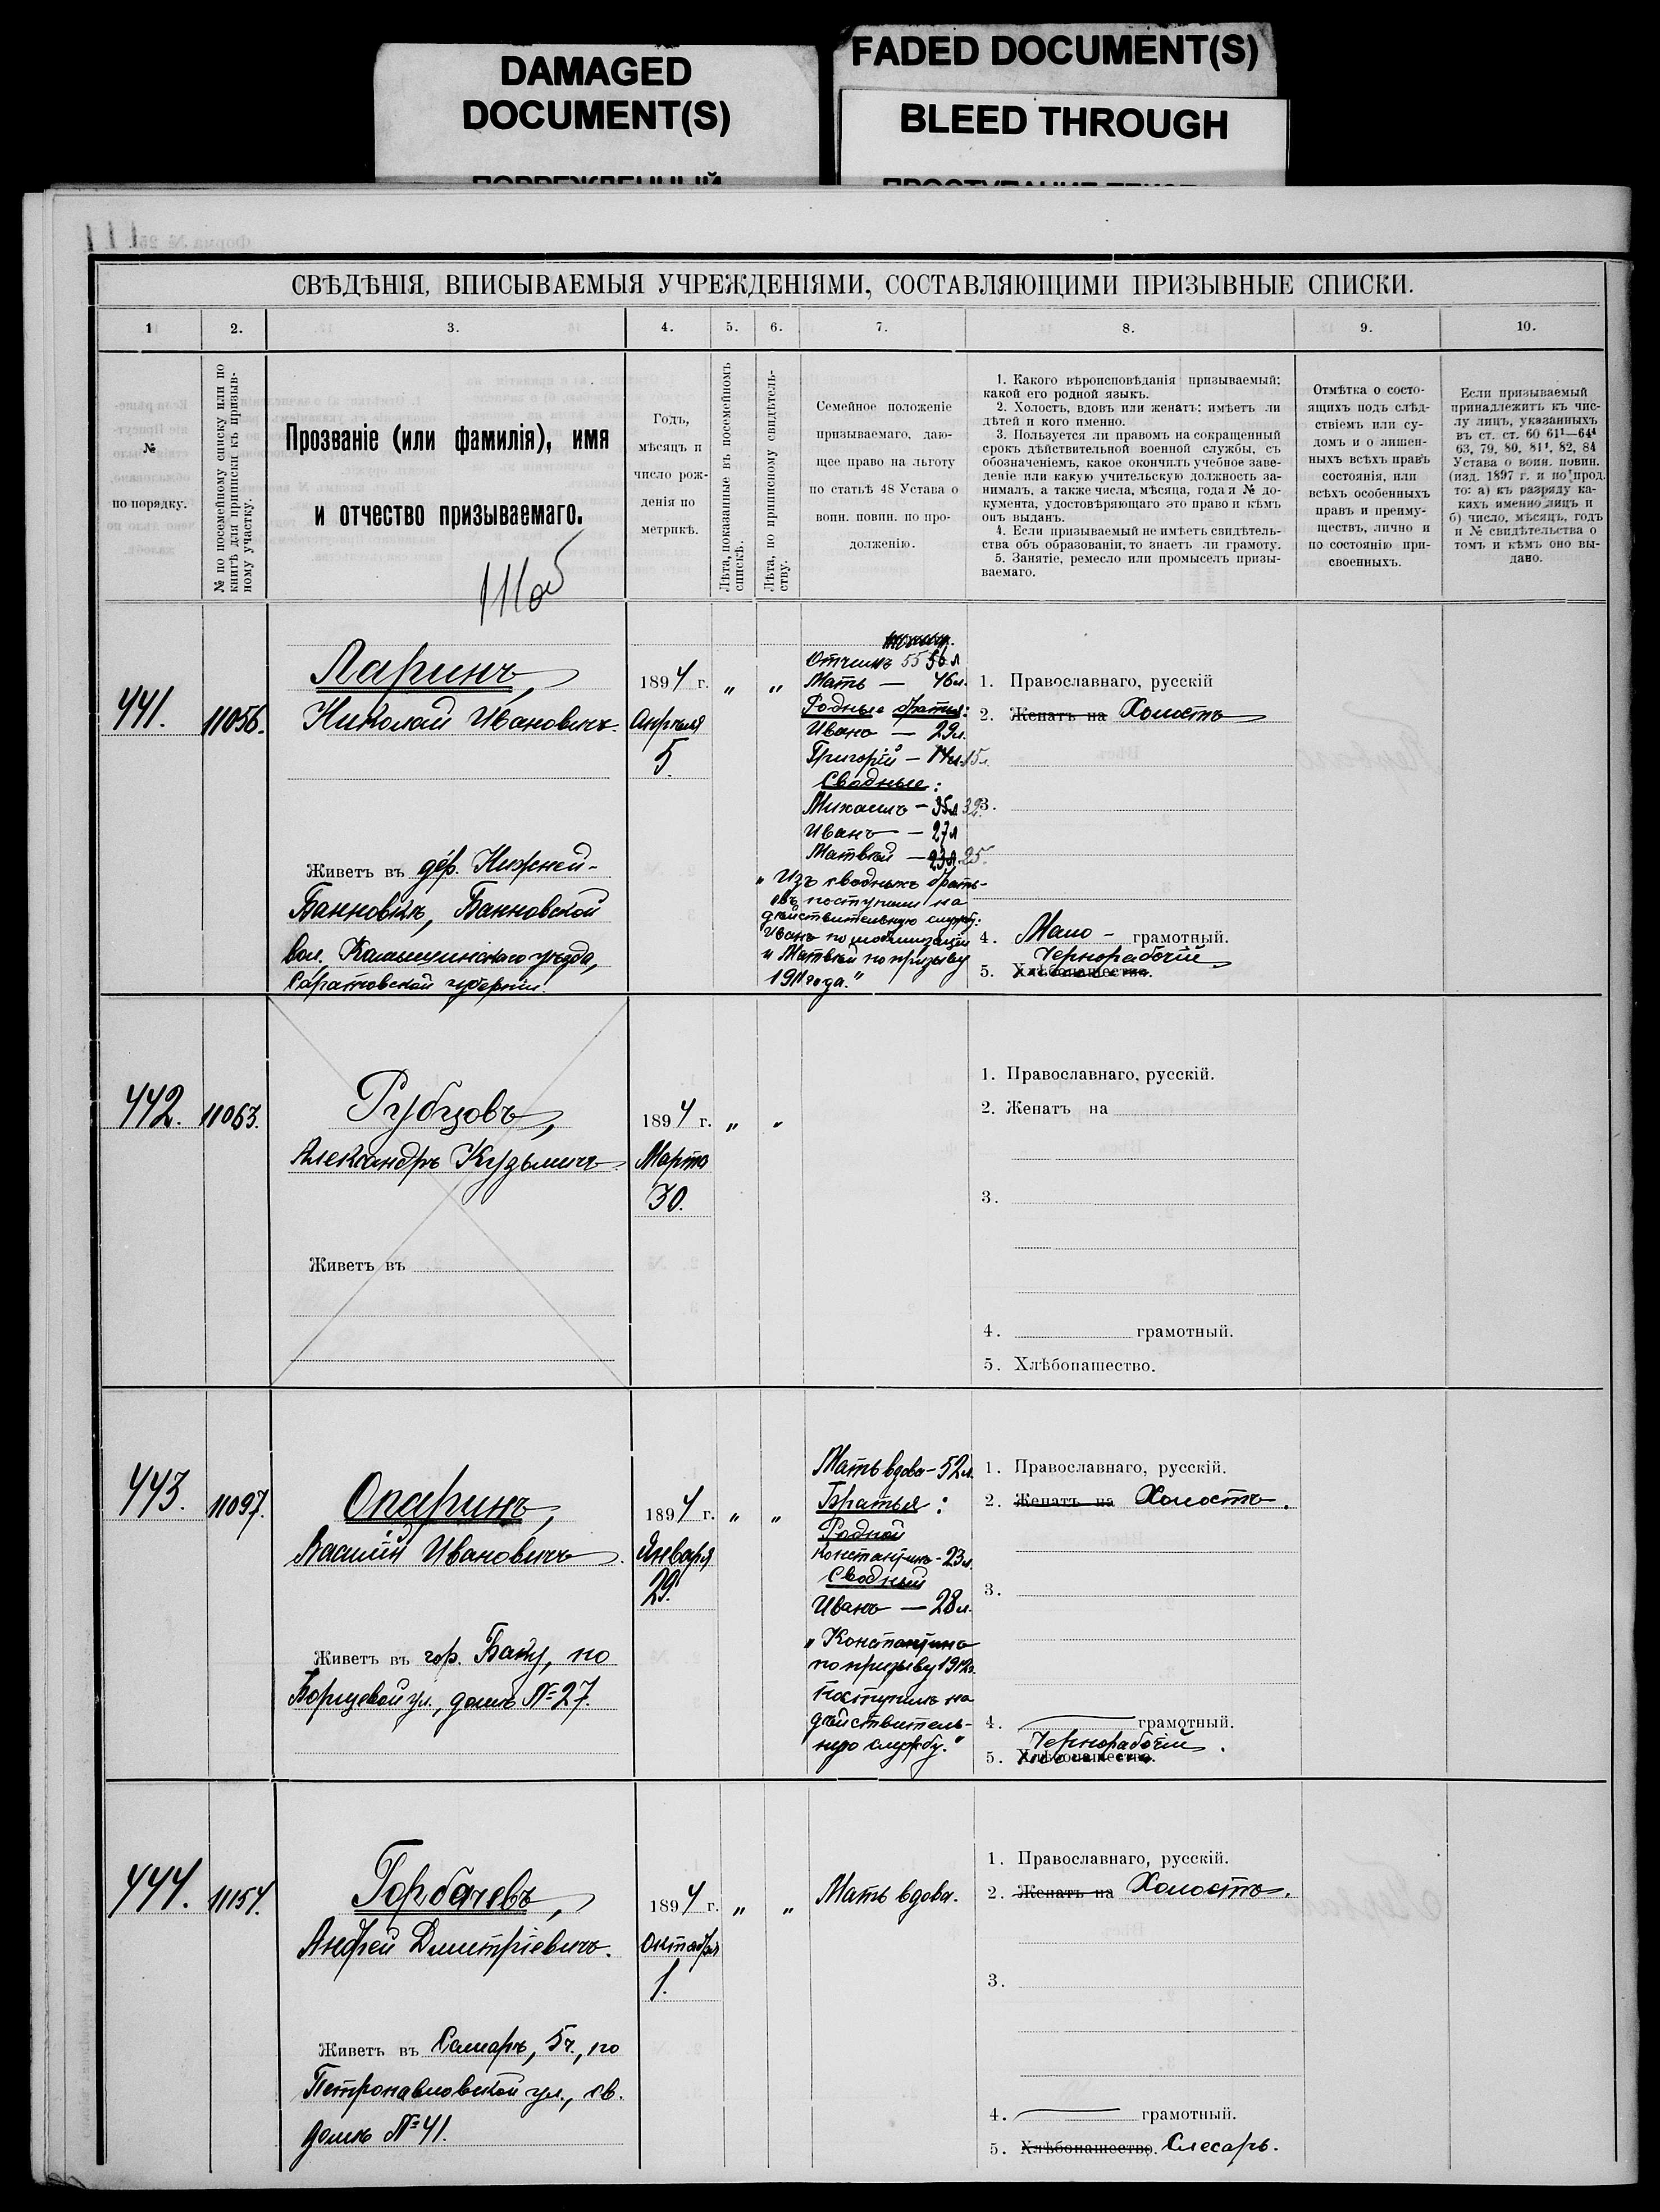 DAMAGED
DOCUMENT(S)
FADED DOCUMENT(S)
BLEED THROUGH
СВѢДѢНІЯ, ВПИСЫВАЕМЫЯ УЧРЕЖДЕНІЯМИ, СОСТАВЛЯЮЩИМИ ПРИЗЫВНЫЕ СПИСКИ.
1 2. 3. 4. 5. 6. 7. 8. 9. 10.
№
по порядку.
№ по посемейному списку или по
книгѣ для приписки къ призыв-
ному участку.
Прозваніе (или фамилія), имя
и отчество призываемаго.
Годъ,
мѣсяцъ и
число рож-
денія по
метрикѣ.
Лѣта, показанные въ посемейномъ
спискѣ.
Лѣта, по приписному свидѣтель-
ству.
Семейное положеніе
призываемаго, даю-
щее право на льготу
по статьѣ 48 Устава о
воин. повин. по про-
долженію.
1. Какого вѣроисповѣданія призываемый;
какой его родной языкъ.
2. Холостъ, вдовъ или женатъ; имѣетъ ли
дѣтей и кого именно.
3. Пользуется ли правомъ на сокращенный
срокъ дѣйствительной военной службы, съ
обозначеніемъ, какое окончилъ учебное заве-
деніе или какую учительскую должность за-
нималъ, а также числа, мѣсяца, года и № до-
кумента, удостовѣряющаго это право и кѣмъ
онъ выданъ.
4. Если призываемый не имѣетъ свидѣтель-
ства объ образованіи, то знаетъ ли грамоту.
5. Занятіе, ремесло или промыселъ призы-
ваемаго.
Отмѣтка о состо-
ящихъ подъ слѣд-
ствіемъ или су-
домъ и о лишен-
ныхъ всѣхъ правъ
состоянія, или
всѣхъ особенныхъ
правъ и преиму-
ществъ, лично и
по состоянію при-
своенныхъ.
Если призываемый
принадлежитъ къ чис-
лу лицъ, указанныхъ
въ ст. ст. 60 61¹—64⁴
63, 79, 80, 81¹, 82, 84
Устава о воин. повин.
(изд. 1897 г. и по прод.
то: а) къ разряду ка-
кихъ именно лицъ и
б) число, мѣсяцъ, годъ
и № свидѣтельства о
томъ и кѣмъ оно вы-
дано.
111об
441.
11056.
Ларинъ,
Николай Ивановичъ.
Живетъ въ дер. Нижней-
Банновкѣ, Банновской
вол. Камышинскаго уѣзда,
Саратовской губерніи.
1894 г.
Апрѣля
5.
„ „
Отчимъ 55 56 л
Мать — 46 л.
Родные братья:
Иванъ — 29 л.
Григорій — 14 л. 15 л.
Сводные:
Михаилъ — 35 л 32.
Иванъ — 27 л
Матвѣй — 23 л. 25.
„Изъ сводныхъ брать-
евъ поступили на
дѣйствительную службу:
Иванъ по мобилизаціи
и Матвѣй по призыву
1911 года."
1. Православнаго, русскій
2. Женатъ на Холостъ
3.
4. Мало - грамотный.
Чернорабочій
5. Хлѣбопашество.
442.
11063.
Рубцовъ,
Александръ Кузьмичъ.
Живетъ въ
1894 г.
Марта
30.
„ „
1. Православнаго, русскій.
2. Женатъ на
3.
4. грамотный.
5. Хлѣбопашество.
443.
11097.
Опаринъ,
Василій Ивановичъ.
Живетъ въ гор. Баку, по
Борцевой ул., домъ № 27.
1894 г.
Января
29.
„ „
Мать вдова - 52 л.
Братья:
Родной
Константинъ - 23 л.
Сводный
Иванъ — 28 л.
„Константинъ
по призыву 1912 г.
поступилъ на
дѣйствитель-
ную службу."
1. Православнаго, русскій.
2. Женатъ на Холостъ.
3.
4. грамотный.
Чернорабочій.
5. Хлѣбопашество.
444.
11154.
Горбачевъ,
Андрей Дмитріевичъ.
Живетъ въ Самарѣ, 5 ч., по
Петропавловской ул., св.
домъ № 41.
1894 г.
Октября
1.
„ „
Мать вдова.
1. Православнаго, русскій.
2. Женатъ на Холостъ.
3.
4. грамотный.
5. Хлѣбопашество. Слесарь.